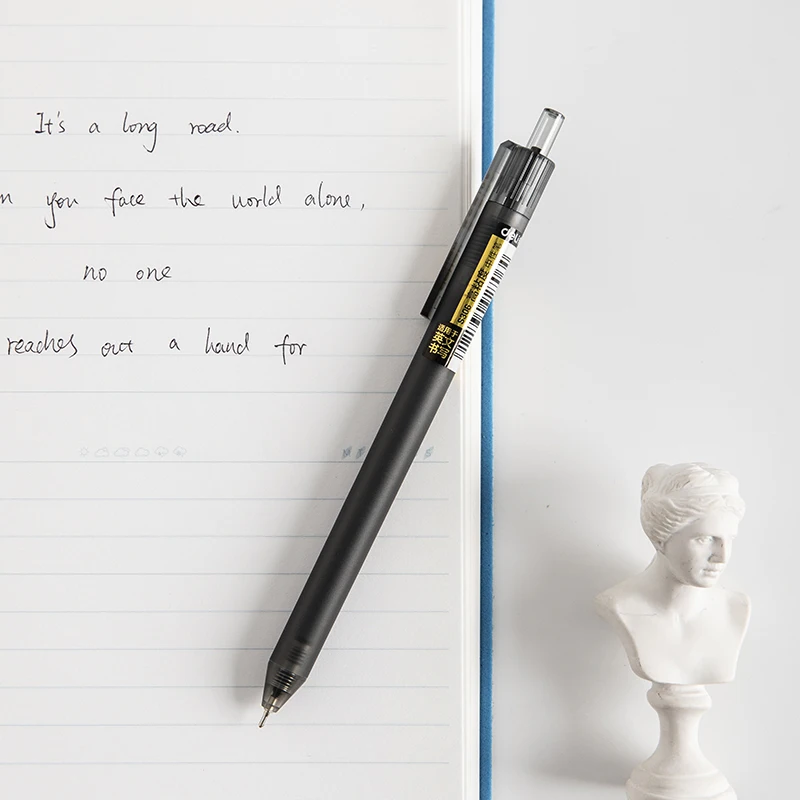 It's a long road.
you face the world alone,
no one
reaches out a hand for
deli
S306 高粘度中性笔
适用于
英文
书写